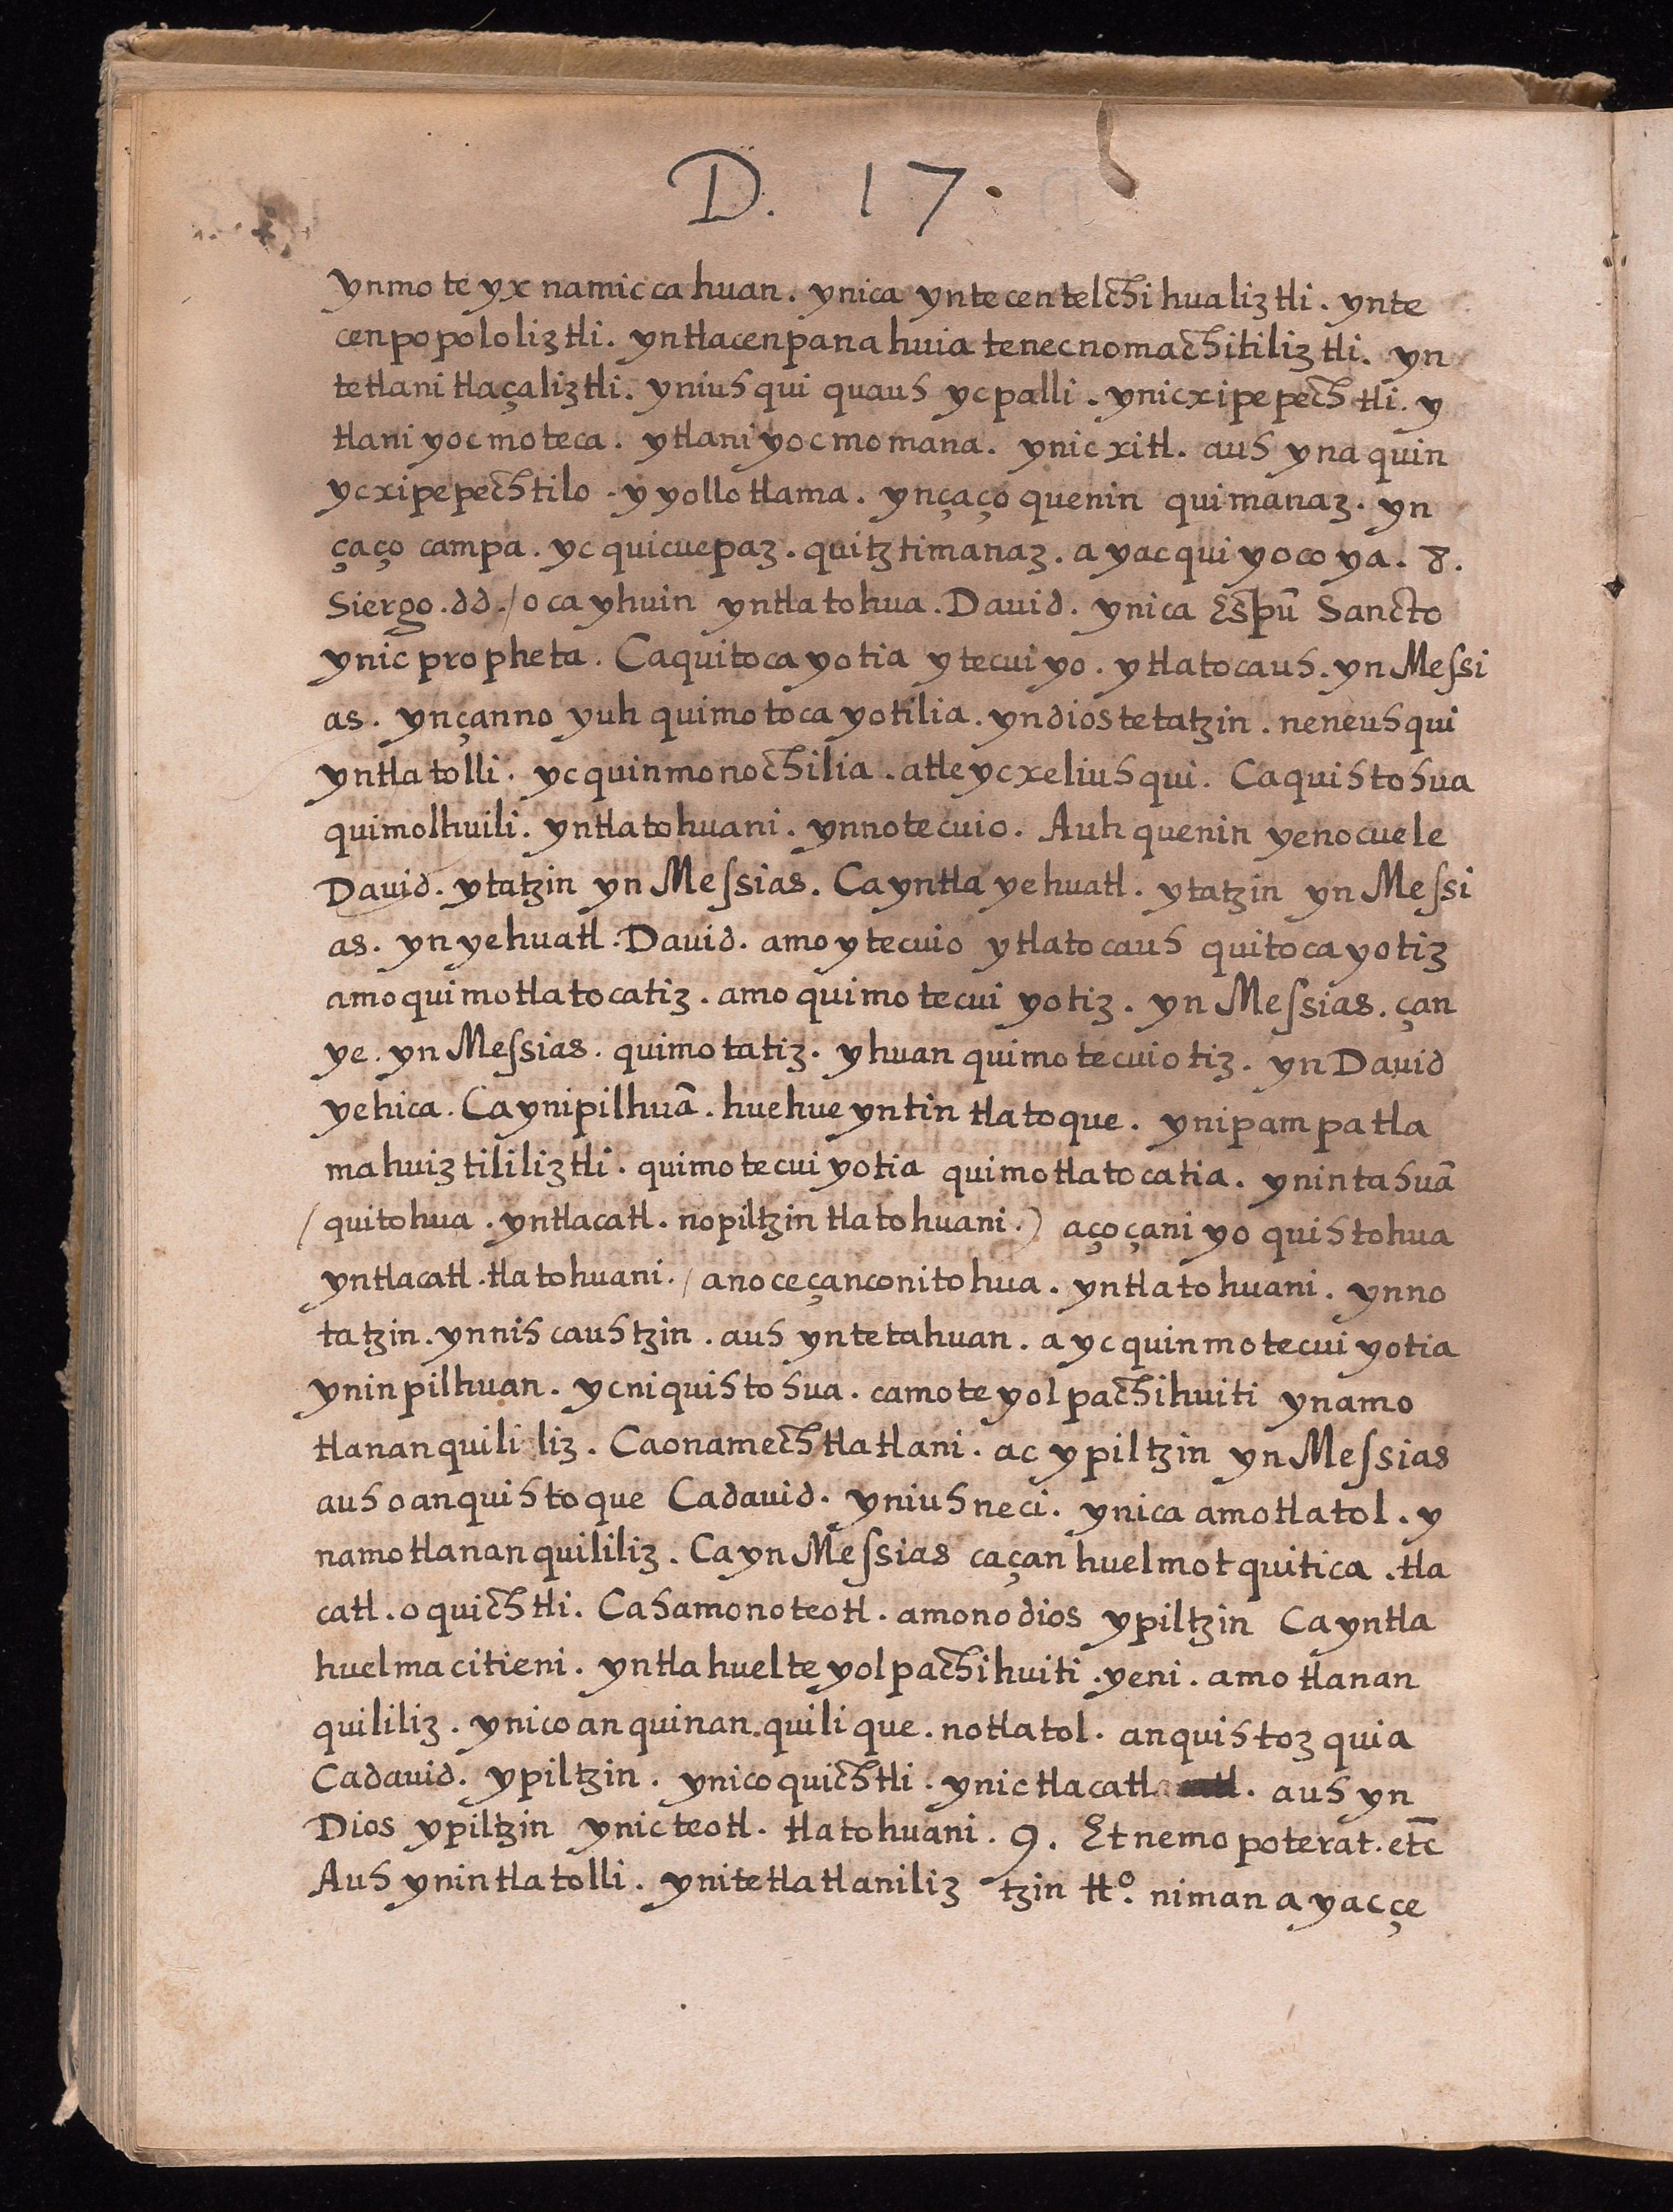 D. 17.
ynmo te yx namic ca huan. ynica yntecentelchi hualiztli. ynte
cenpopololiztli. yntlacenpanahuia tenecnomachitiliztli. yn
tetlani tlaçaliztli. yniuhqui quauh ycpalli. ynicxipepechtli. y
tlani yocmoteca. ytlani yocmomana. ynicxitl. auh ynaquin
ycxipepechtilo. y yollotlama. ynçaço quenin quimanaz. yn
çaço campa. yc quicuepaz. quitztimanaz. ayac qui yocoya. 8.
Siergo. dd. / oca yhuin yntlatohua. Dauid. ynica Espũ Sancto
ynic propheta. Caquitoca yotia ytecuiyo. ytlatocauh. yn Messi
as. ynçanno yuh quimotoca yotilia. yndiostetatzin. neneuhqui
yntlatolli. yc quinmonochilia. atle ycxeliuhqui. Caquihtohua
quimolhuili. yntlatohuani. ynnotecuio. Auh quenin yenocuele
Dauid. ytatzin yn Messias. Ca yntla yehuatl. ytatzin yn Messi
as. yn yehuatl. Dauid. amo ytecuio ytlatocauh quitoca yotiz
amo quimotlatocatiz. amo quimotecui yotiz. yn Messias. çan
ye. yn Messias. quimotatiz. yhuan quimotecuiotiz. yn Dauid
yehica. Ca ynipilhuã. huehueyntin tlatoque. ynipampa tla
mahuiztililiztli. quimotecui yotia quimotlatocatia. ynintahuã
(quitohua. yntlacatl. nopiltzin tlatohuani.) aço çani yo quihtohua
yntlacatl. tlatohuani. / anoceçanconitohua. yntlatohuani. ynno
tatzin. ynnihcauhtzin. auh yntetahuan. ayc quinmotecui yotia
yninpilhuan. ycniquihtohua. camoteyolpachihuiti ynamo
tlananquili liz. Caonamechtlatlani. ac ypiltzin yn Messias
auh oanquihtoque Cadauid. yniuhneci. ynica amotlatol. y
namotlananquililiz. Ca yn Messias caçan huelmotquitica. tla
catl. oquichtli. Cahamonoteotl. amonodios ypiltzin Ca yntla
huelmacitieni. yntla huelteyolpachihuiti. yeni. amo tlanan
quililiz. ynicoanquinan.quilique. notlatol. anquihtozquia
Cadauid. ypiltzin. ynicoquichtli. ynictlacatl. auh yn
Dios ypiltzin ynicteotl. tlatohuani. 9. Et nemo poterat. etc̃
Auh ynintlatolli. ynitetlatlaniliz tzin tto. niman ayacçe